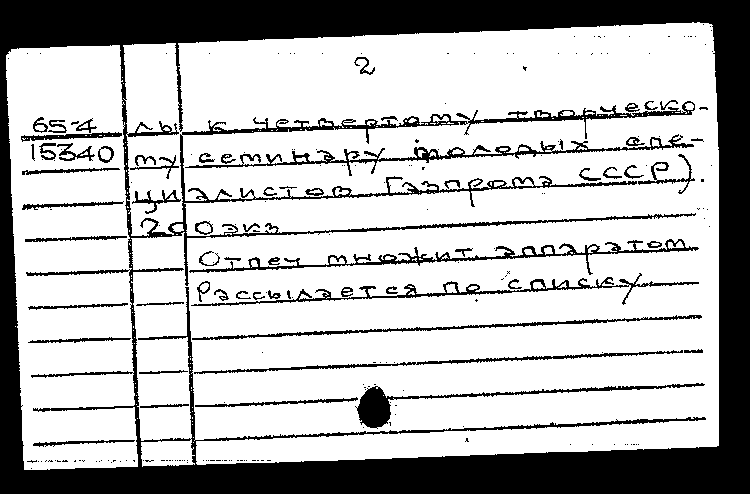 2
65-4 лы к четвертому творческо-
15340 му семинару молодых спе-
циалистов Газпрома СССР).
200экз
Отпеч множит. аппаратом
Рассылается по списку